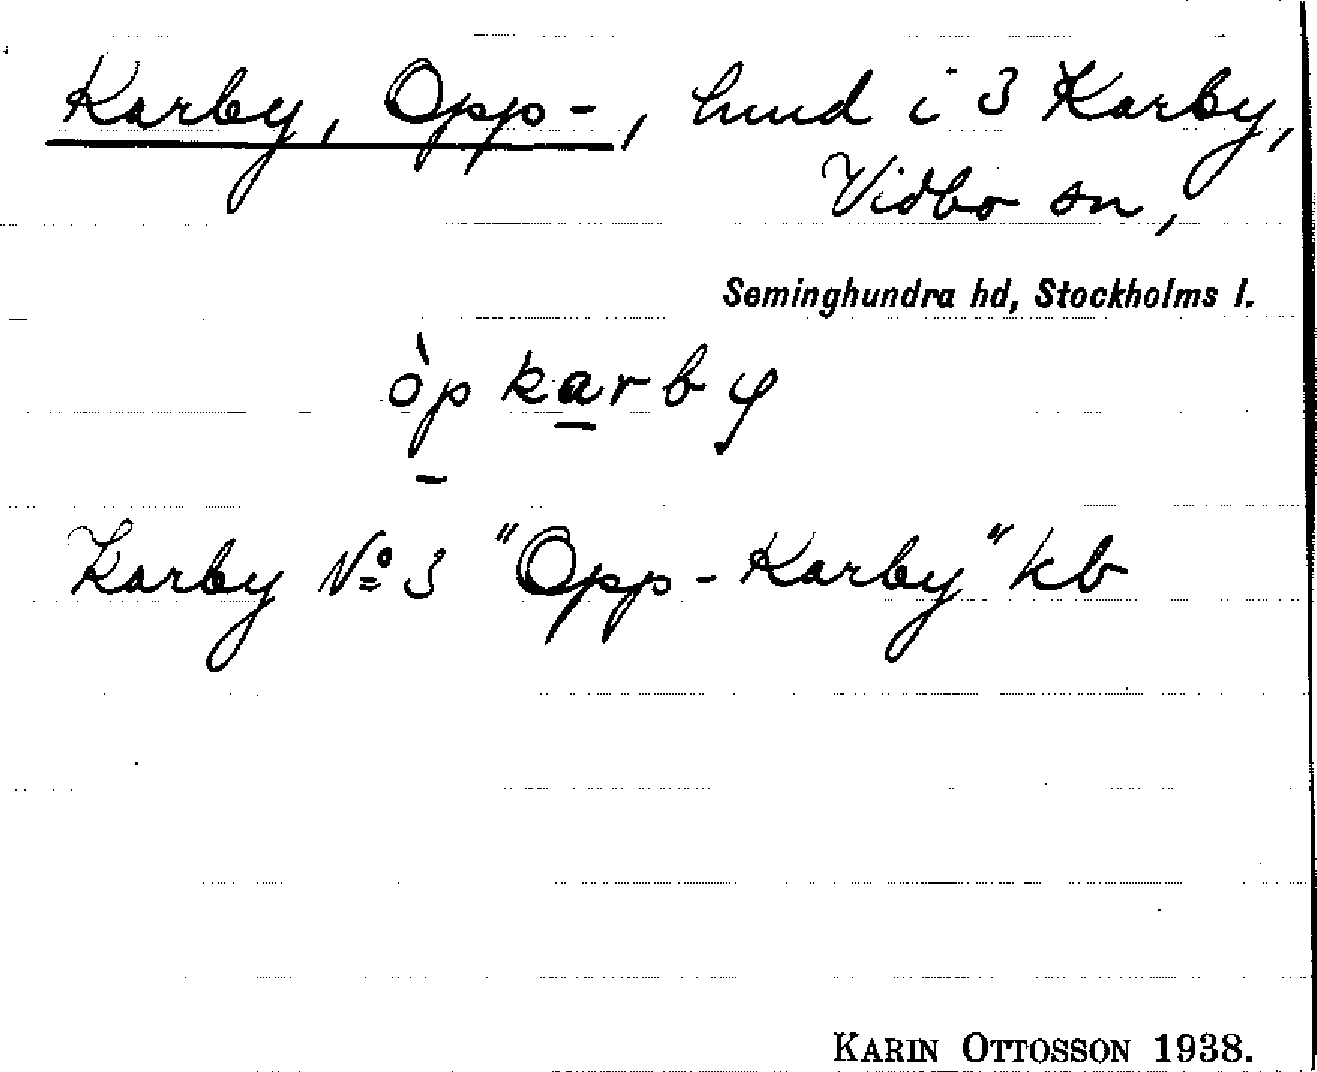 Karby, Opp-, hmd i 3 Karby,
Vidbo sn,
Seminghundra hd, Stockholms l.
òp karby
Karby No 3 "Opp-Karby" kb
KARIN OTTOSSON 1938.